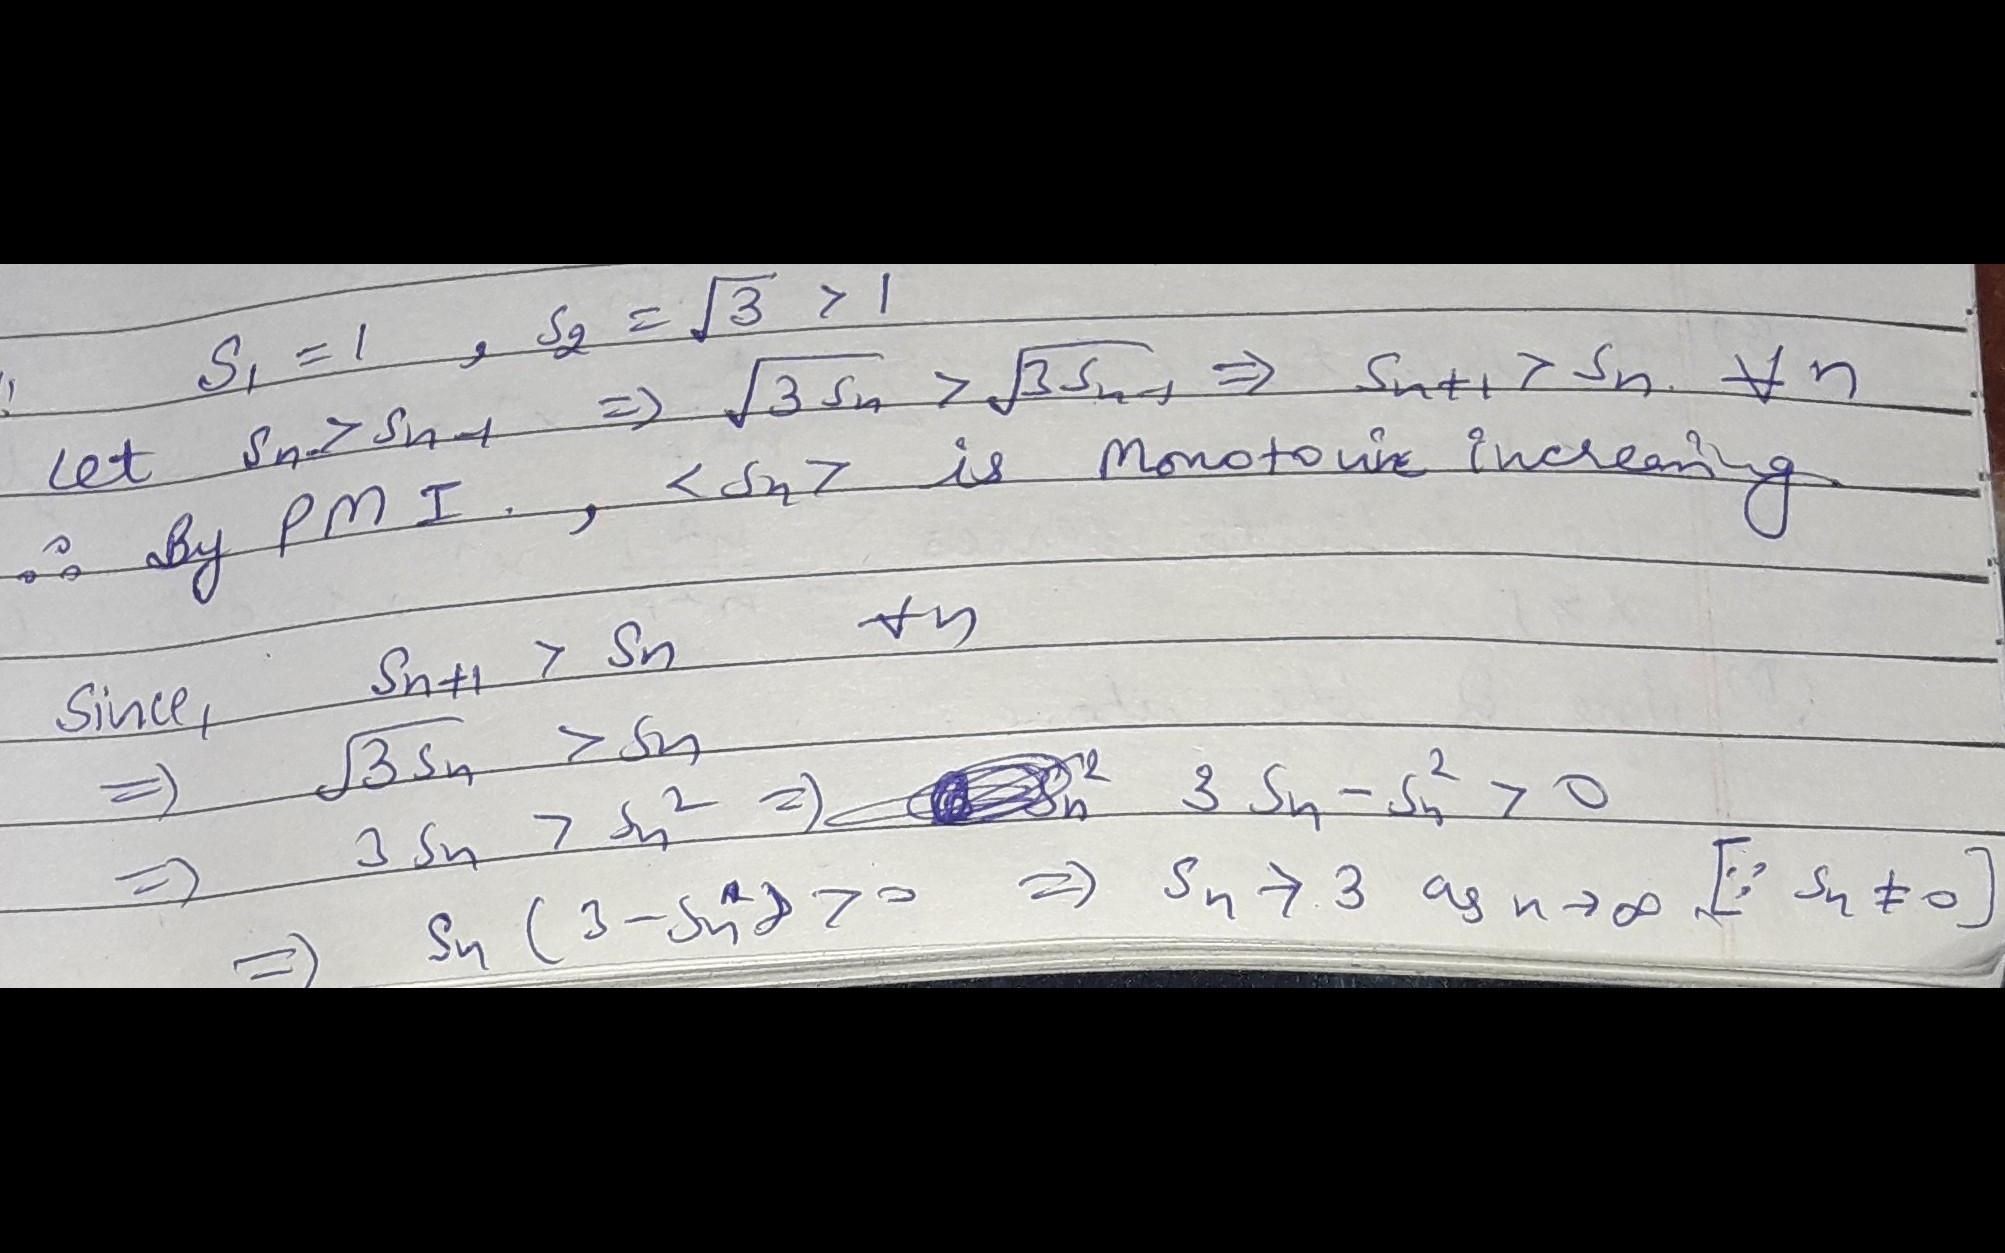 S₁ = 1 , S₂ = √3 > 1
Let Sn > Sn-1 ⇒ √3Sn > √3Sn-1 ⇒ Sn+1 > Sn ∀ n
∴ By PMI. , <Sn> is Monotonic increasing
Since, Sn+1 > Sn ∀ n
⇒ √3Sn > Sn
⇒ 3Sn > Sn² ⇒ Sn² 3Sn - Sn² > 0
⇒ Sn (3 - Sn) > 0 ⇒ Sn → 3 as n → ∞ [∵ Sn ≠ 0]